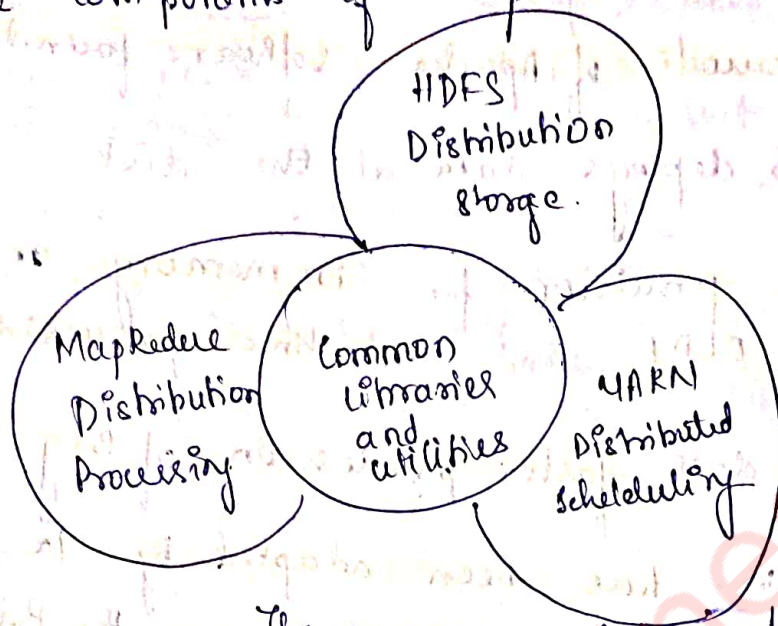 components of
HDFS
Distribution
storge.
MapReduce
Distribution
Processing
Common
libraries
and
utilities
YARN
Distributed
schelduling